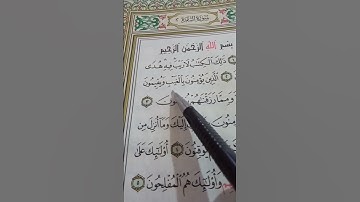 سورة البقرة ٢
بسم الله الرحمن الرحيم
ذلك الكتب لا ريب فيه هدى
الذين يؤمنون بالغيب ويقيمون
ومما رزقنهم
إليك وما أنزل من
يوقنون ٤ أولئك على
وأولئك هم المفلحون ٥